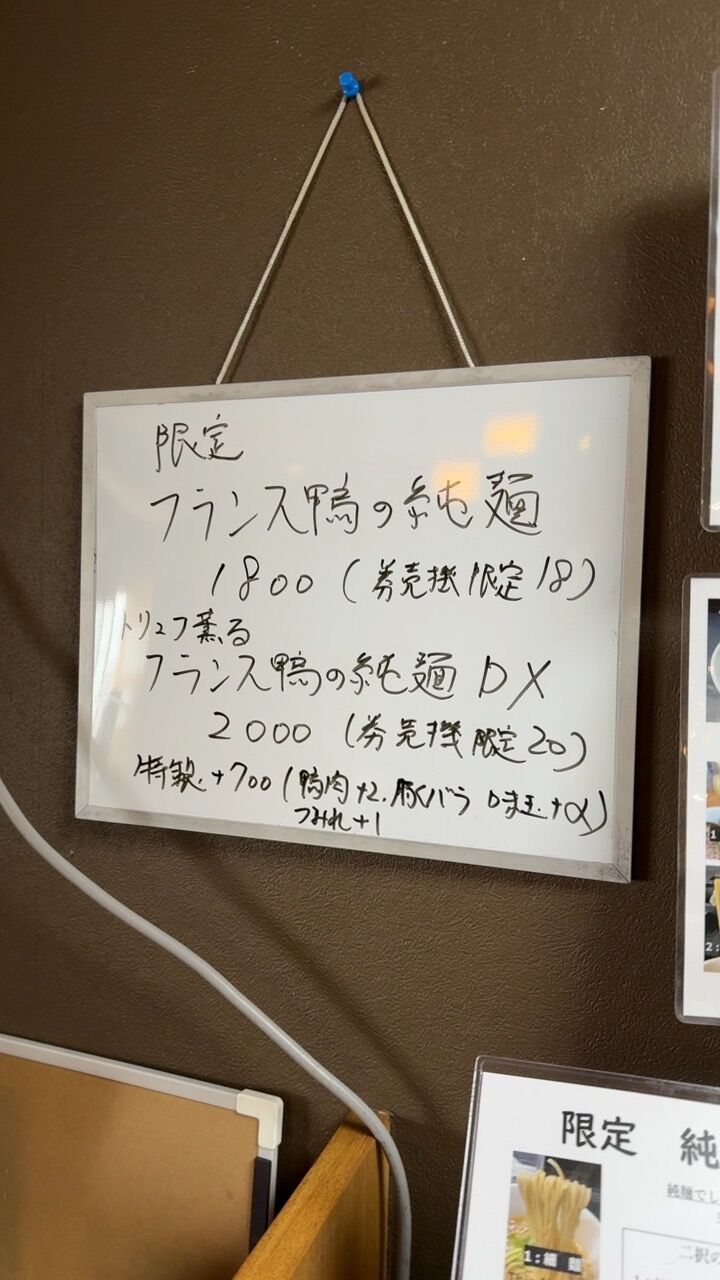 限定
フランス鴨の純麺
1800 (券売機限定18)
トリュフ薫る
フランス鴨の純麺DX
2000 (券売機限定20)
特製 +700 (鴨肉+2.豚バラ 味玉+α)
つみれ+1
限定 純
純麺でし
二択の
1:細麺
2: